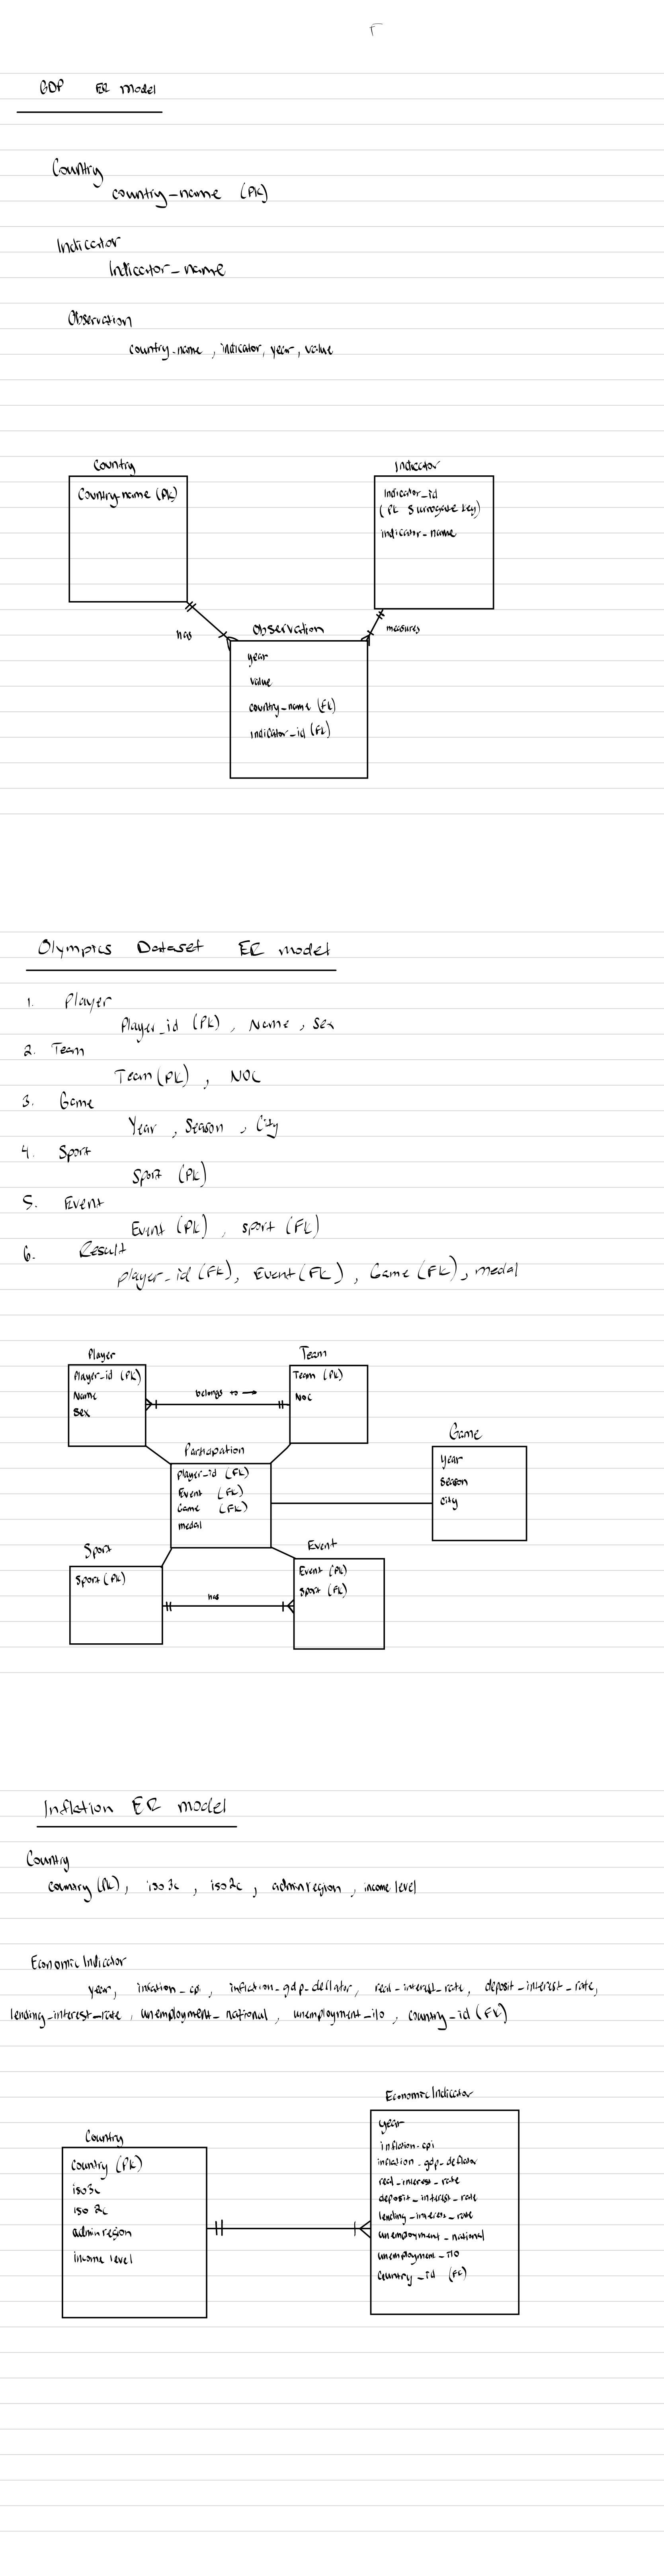 GDP ER model
Country
country-name (PK)
Indicator
Indicator_name
Observation
country-name, indicator, year, value
Country
Country-name (PK)
Indicator
Indicator_id
(PK surrogate key)
indicator-name
has
measures
Observation
year
value
country-name (FK)
indicator-id (FK)
Olympics Dataset ER model
1. Player
Player_id (PK), Name, Sex
2. Team
Team (PK), NOC
3. Game
Year, Season, City
4. Sport
Sport (PK)
5. Event
Event (PK), sport (FK)
6. Result
player_id (FK), Event (FK), Game (FK), medal
Player
Player-id (PK)
Name
Sex
belongs to →
Team
Team (PK)
NOC
Participation
player_id (FK)
Event (FK)
Game (FK)
medal
Game
year
season
city
Sport
Sport (PK)
has
Event
Event (PK)
Sport (FK)
Inflation ER model
Country
country (PK), iso3c, iso2c, adminregion, income level
Economic Indicator
year, inflation_cpi, inflation_gdp_deflator, real_interest_rate, deposit_interest_rate,
lending_interest_rate, unemployment_national, unemployment_ilo, country_id (FK)
Country
country (PK)
iso3c
iso 2c
adminregion
income level
Economic Indicator
year
inflation-cpi
inflation_gdp_deflator
real_interest_rate
deposit_interest_rate
lending_interest_rate
unemployment_national
unemployment_ilo
country_id (FK)